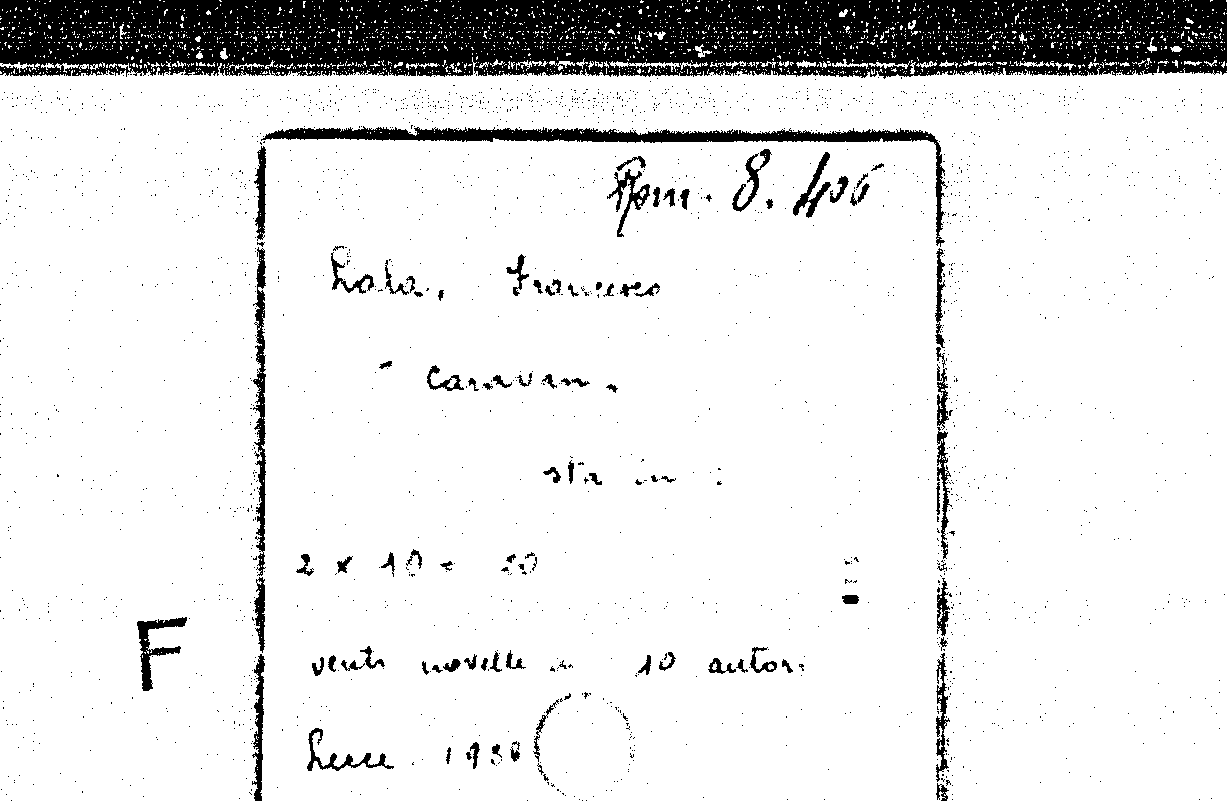 Rom. 8. 406
Lala, Francesco
- Caravan.
sta in :
2 x 10 = 20
venti novelle di 10 autori
F
Lecce 1936